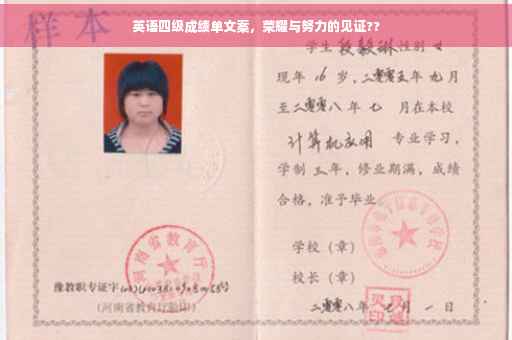 英语四级成绩单文案，荣耀与努力的见证??
样本
学生 段毅琳 性别 女
现年 16 岁，二零零五年 九 月
至二零零八年 七 月在本校
计算机应用 专业学习，
学制 三 年，修业期满，成绩
合格，准予毕业
学校（章）
校长（章）
二零零八年 七 月 一 日
河南省教育厅
豫教职专证字
（河南省教育厅验印）